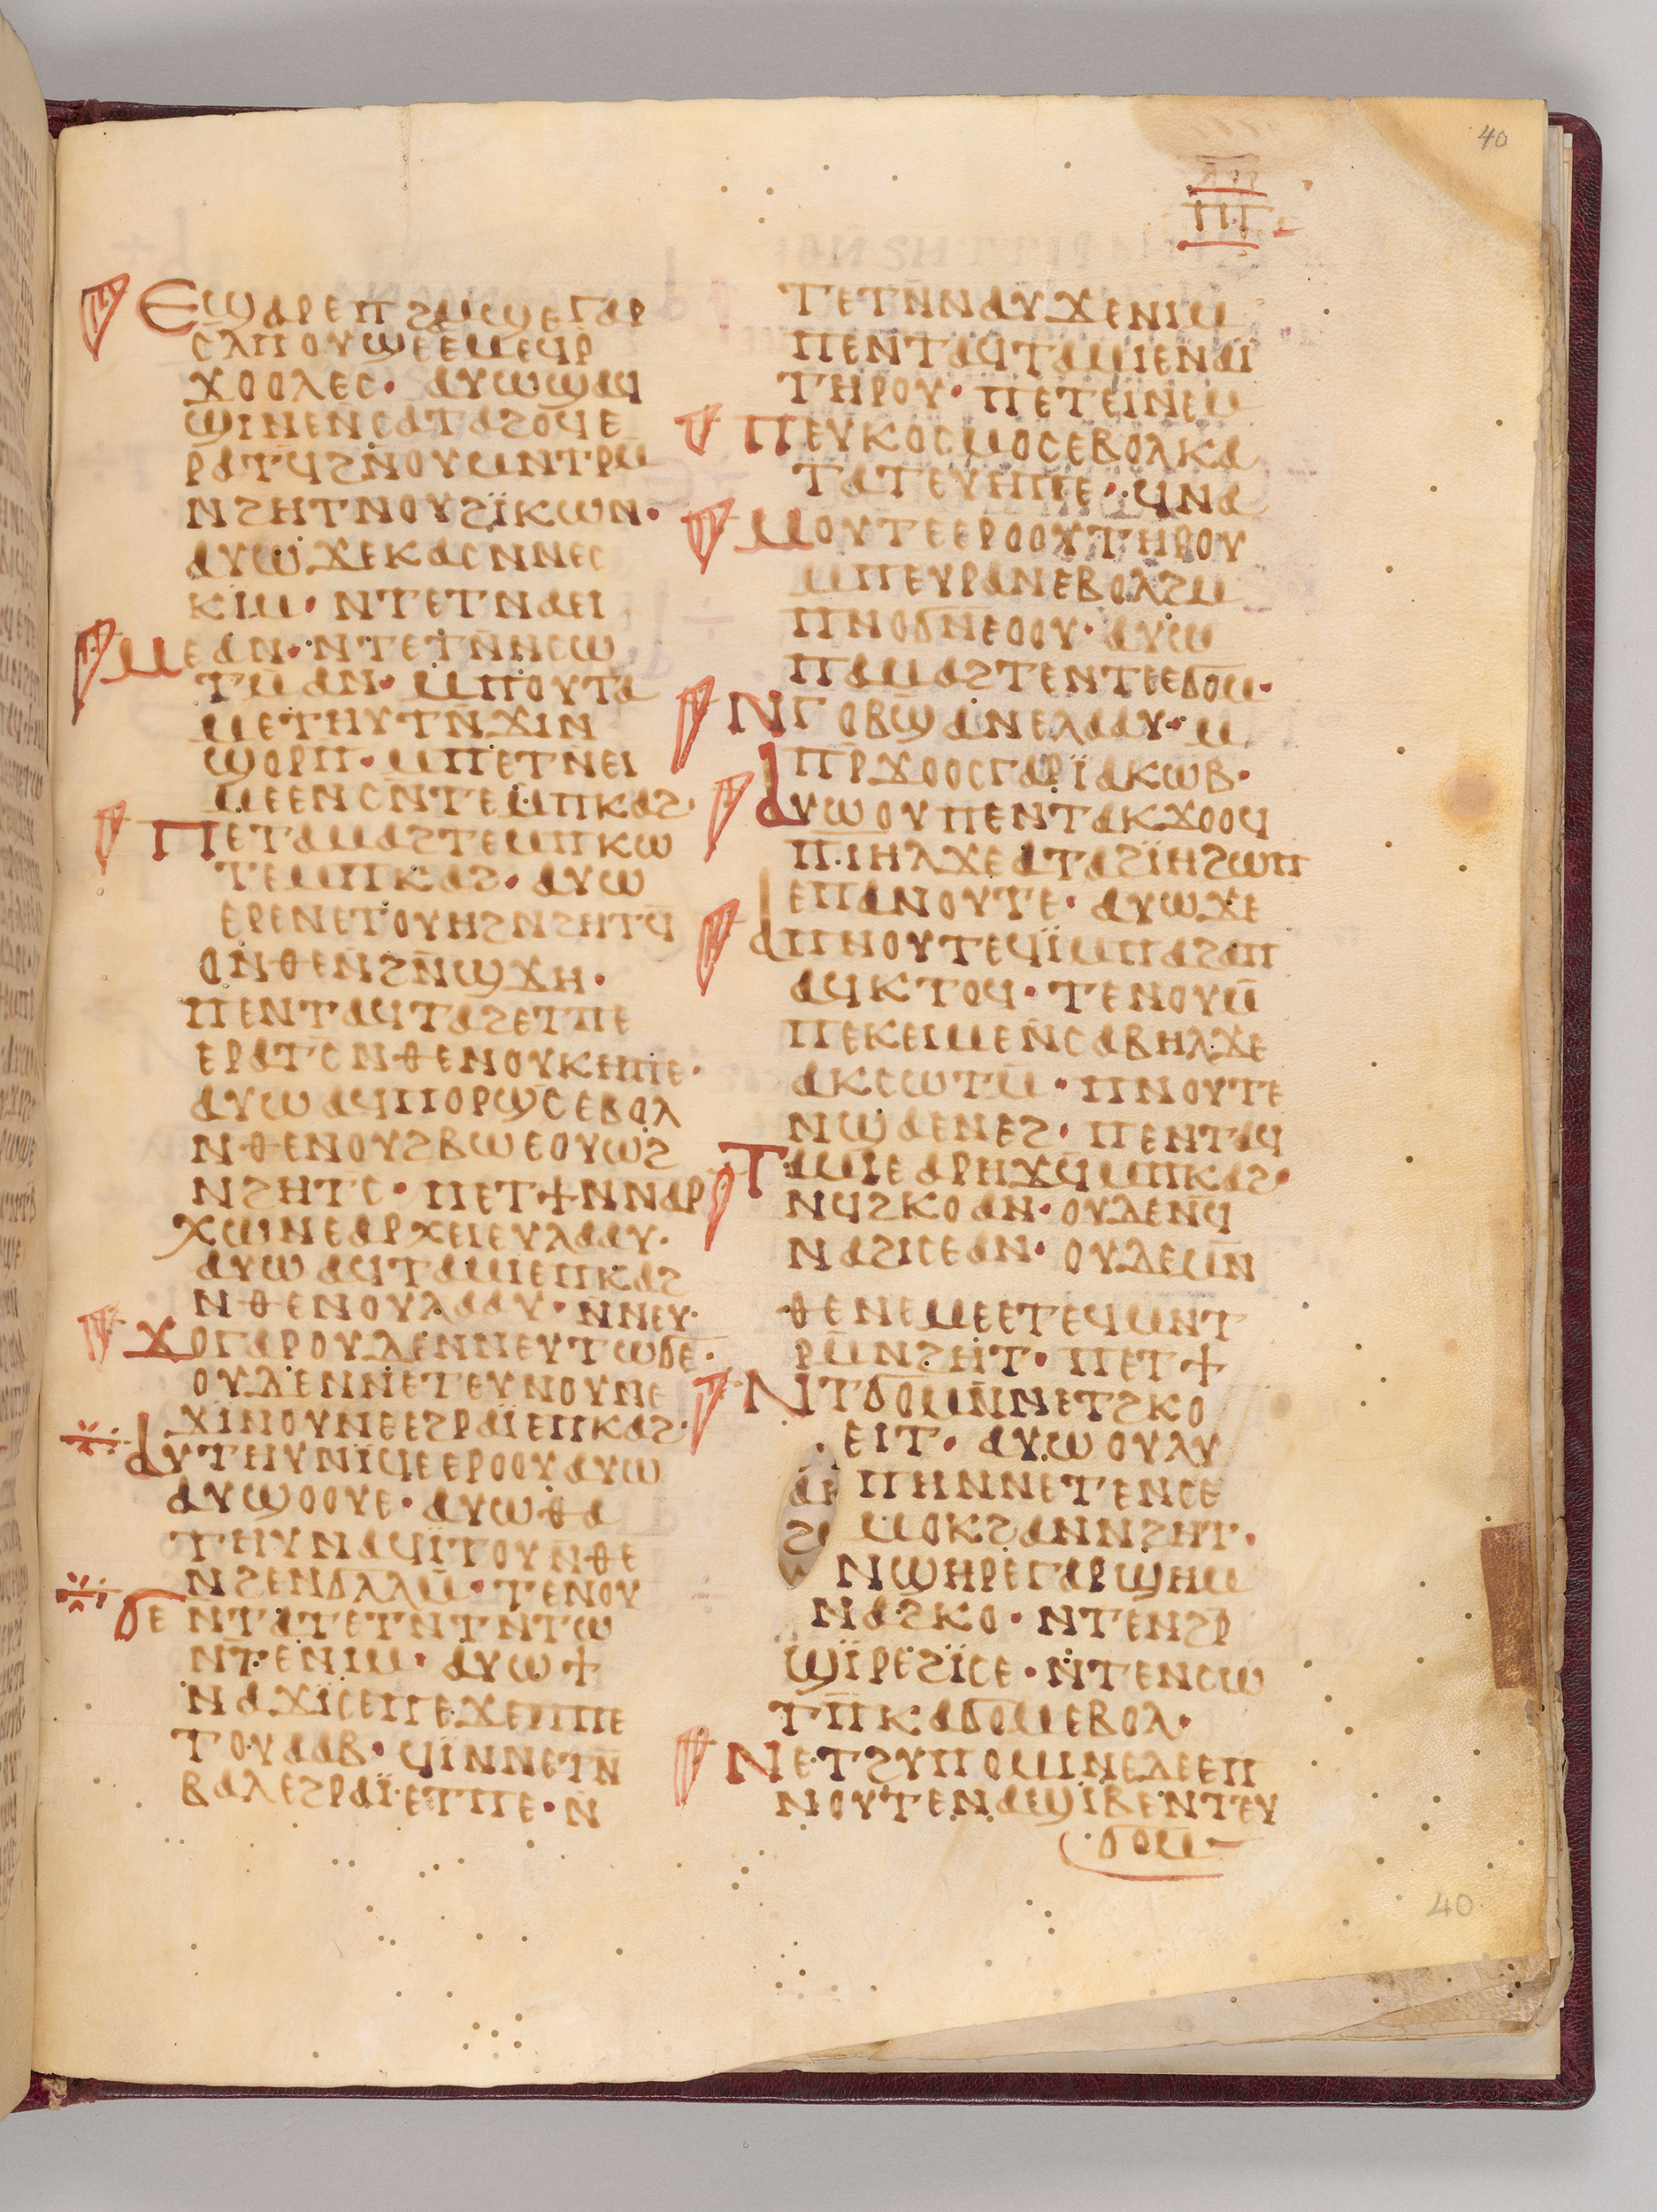 40
ⲠⲄ
ⲈϢⲀⲢⲈⲠϨⲀⲘϢⲈⲄⲀⲢ
ⲤⲖⲠⲟⲩϢⲈⲈⲘⲈϤⲢ
ϪⲞⲞⲖⲈⲤ· ⲀⲨⲰϢⲀϤ
ϢⲒⲚⲈⲚ̄ⲤⲀⲦⲀϨⲞϤⲈ
ⲢⲀⲦϤϨⲚ̄ⲞⲨⲘⲚⲦⲢⲘ̄
ⲚϨⲎⲦⲚⲞⲨϨⲒ̈ⲔⲰⲚ·
ⲀⲨⲰϪⲈⲔⲀⲤⲚⲚⲈⲤ
ⲔⲒⲘ· ⲚⲦⲈⲦⲚⲀⲈⲒ
ⲘⲈⲀⲚ·ⲚⲦⲈⲦⲚ̄ⲚⲤⲰ
ⲦⲘ̄ⲀⲚ· ⲘⲠⲞⲨⲦⲀ
ⲘⲈⲦⲎⲨⲦⲚ̄ϪⲒⲚ
ϢⲞⲢⲠ·ⲘⲠⲈⲦⲚ̄ⲈⲒ
ⲘⲈⲈⲚⲤⲚ̄ⲦⲈⲘⲠⲔⲀϨ·
ⲠⲈⲦⲀⲘⲀϨⲦⲈⲘⲠⲔⲰ
ⲦⲈⲘⲠⲔⲀϨ· ⲀⲨⲰ
ⲈⲢⲈⲚⲈⲦⲞⲨⲎϨⲚϨⲎⲦϤ̄
ⲞⲚ̄ⲐⲈⲚ̄ϨⲚ̄ϢϪⲎ·
ⲠⲈⲚⲦⲀϤⲦⲀϨⲈⲦⲠⲈ
ⲈⲢⲀⲦⲤ̄ⲚⲐⲈⲚⲞⲨⲔⲎⲠⲈ·
ⲀⲨⲰⲀϤⲠⲞⲢϢⲤ̄ⲈⲂⲞⲖ
ⲚⲐⲈⲚⲞⲨϨⲂⲰⲈⲞⲨⲰϨ
ⲚϨⲎⲦⲤ· ⲠⲈⲦϮⲚⲚⲀⲢ
ⲬⲰⲚⲈⲀⲢⲬⲈⲒⲈⲨⲖⲀⲀⲨ·
ⲀⲨⲰⲀϤⲦⲀⲘⲒⲈⲠⲔⲀϨ
ⲚⲐⲈⲚⲞⲨⲖⲀⲀⲨ·Ⲛ̄ⲚⲈⲨ·
ϪⲞⲄⲀⲢⲞⲨⲆⲈⲚⲚⲈⲨⲦⲰϬⲈ·
ⲞⲨⲆⲈⲚⲚⲈⲦⲈⲨⲚⲞⲨⲚⲈ
ϪⲒⲚⲞⲨⲚⲈⲈϨⲢⲀⲒ̈ⲈⲠⲔⲀϨ·
ⲀⲨⲦⲎⲨⲚⲒ̈ϤⲈⲈⲢⲞⲞⲨⲀⲨⲰ
ⲀⲨϢⲞⲞⲨⲈ· ⲀⲨⲰⲐⲀ
ⲦⲎⲨⲚⲀϤⲒ̈ⲦⲞⲨⲚ̄ⲐⲈ
ⲚϨⲈⲚϬⲖⲖⲘ̄·ⲦⲈⲚⲞⲨ
ϬⲈ ⲚⲦⲀⲦⲈⲦⲚ̄ⲦⲚ̄ⲦⲰ
ⲚⲦ·ⲈⲚⲒⲘ· ⲀⲨⲰϮ
ⲚⲀϪⲒ̈ⲤⲈⲠⲈϪⲈⲠⲠⲈ
ⲦⲞⲨⲀⲀⲂ·ϤⲒ̈ⲚⲚⲈⲦⲚ̄
ⲂⲀⲖⲈϨⲢⲀⲒ̈·ⲈⲦⲠⲈ·Ⲛ̄
ⲦⲈⲦⲚ̄ⲚⲀⲨϪⲈⲚⲒⲘ
ⲠⲈⲚⲦⲀϤⲦⲀⲘⲒⲈⲚⲀⲒ
ⲦⲎⲢⲞⲨ·ⲠⲈⲦⲈⲒⲚⲈⲘ
ⲠⲈⲨⲔⲞⲤⲘⲞⲤⲈⲂⲞⲖⲔⲀ
ⲦⲀⲦⲈⲨⲎⲠⲈ·ϤⲚⲀ
ⲘⲞⲨⲦⲈⲈⲢⲞⲞⲨⲦⲎⲢⲞⲨ
ⲘⲠⲈⲨⲢⲀⲚⲈⲂⲞⲖϨⲘ̄
ⲠⲚⲞϬⲚ̄ⲈⲞⲞⲨ·ⲀⲨⲰ
ⲠⲀⲘⲀϨⲦⲈⲚⲦⲈⲈϬⲞⲘ·
ⲚⲄ ⲞⲂϢ ⲀⲚⲈⲖⲀⲀⲨ·Ⲙ
ⲠⲢ̄ϪⲞⲞⲤⲄⲀⲢⲒ̈ⲀⲔⲰⲂ·
ⲀⲨⲰⲞⲨⲠⲈⲚⲦⲀⲔϪⲞⲞϤ
ⲠⲒⲎⲖϪⲈⲀⲦⲀϨⲒ̈ⲎϨⲰⲠ
ⲈⲠⲀⲚⲞⲨⲦⲈ· ⲀⲨⲰϪⲈ
ⲀⲠⲚⲞⲨⲦⲈϤⲒ̈ⲘⲠⲀϨⲀⲠ
ⲀϤⲔⲦⲞϤ·ⲦⲈⲚⲞⲨⲘ̄
ⲠⲈⲔⲈⲒⲘⲈⲚ̄ⲤⲀⲂⲎⲖϪⲈ
ⲀⲔⲤⲰⲦⲘ̄·ⲠⲚⲞⲨⲦⲈ
ⲚϢⲀⲈⲚⲈϨ·ⲠⲈⲚⲦⲀϤ
ⲦⲀⲘⲒⲈⲀⲢⲎϪϤ̄ⲘⲠⲔⲀϨ·
ⲚϤϨⲔⲞⲀⲚ·ⲞⲨⲆⲈⲚϤ̄
ⲚⲀϨⲒⲤⲈⲀⲚ·ⲞⲨⲆⲈⲘⲚ̄
ⲐⲈⲚⲈⲘⲈⲈⲦⲈϤⲘⲚⲦ
ⲢⲘ̄ⲚϨⲎⲦ·ⲠⲈⲦϮ
ⲚⲦϬⲞⲘⲚ̄ⲚⲈⲦϨⲔⲞ
ⲈⲒⲦ· ⲀⲨⲰⲞⲨⲖⲨ
ⲠⲎⲚⲚⲈⲦⲈⲚⲤⲈ
ⲘⲞⲔϨⲀⲚⲚϨⲎⲦ·
ⲚϢⲎⲢⲈⲄⲀⲢϢⲎⲘ
ⲚⲀϨⲔⲞ·ⲚⲦⲈⲚϨⲢ̄
ϢⲒ̈ⲢⲈϨⲒ̈ⲤⲈ·ⲚⲦⲈⲚⲤⲰ
ⲦⲠ̄ⲔⲀϬⲞⲘⲈⲂⲞⲖ·
ⲚⲈⲦϨⲨⲠⲞⲘⲒⲚⲈⲆⲈⲈⲠ
ⲚⲞⲨⲦⲈⲚⲀϢⲒⲂⲈⲚⲦⲈⲨ
ϬⲞⲘ
40